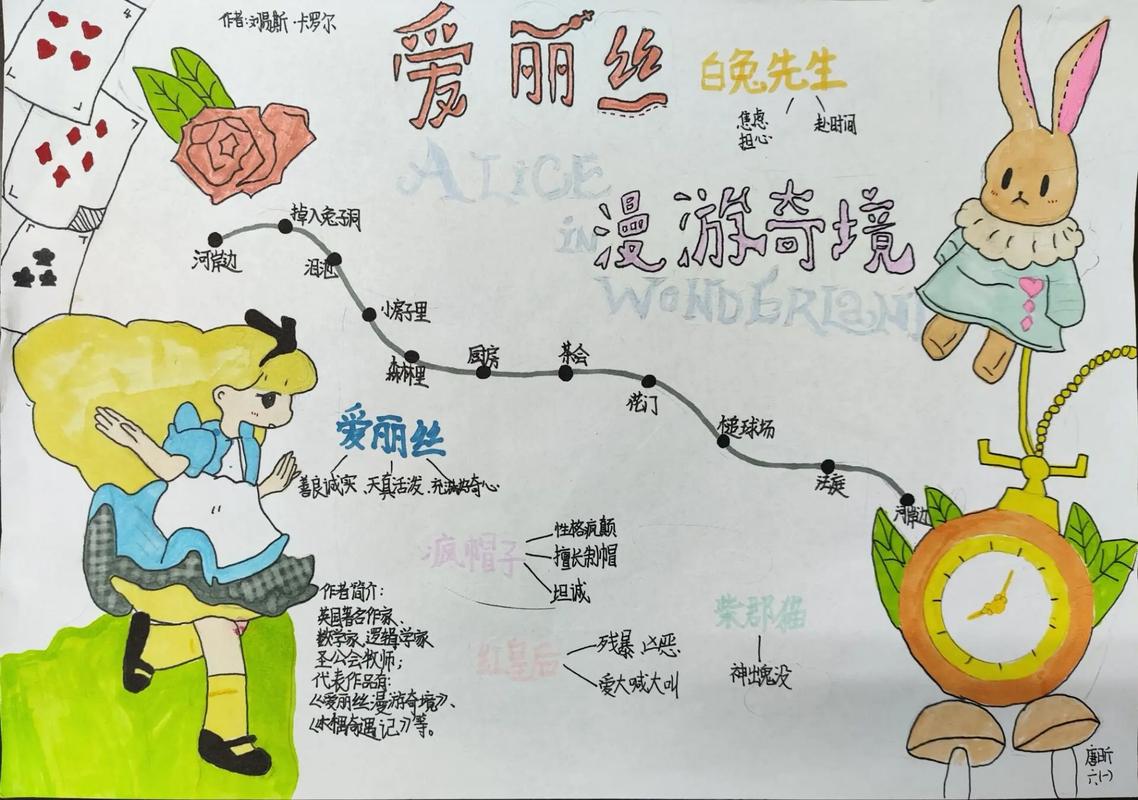 作者:刘易斯·卡罗尔
爱丽丝
ALiCE
in
漫游奇境
WONDERLAND
白兔先生
焦虑
担心
赴时间
河岸边
掉入兔子洞
泪池
小房子里
森林里
厨房
茶会
花门
槌球场
法庭
河岸边
爱丽丝
善良诚实、天真活泼、充满好奇心
疯帽子
性格疯颠
擅长制帽
坦诚
红皇后
残暴 凶恶
爱大喊大叫
柴郡猫
神出鬼没
作者简介:
英国著名作家、
数学家、逻辑学家
圣公会牧师;
代表作品有:
《爱丽丝漫游奇境》、
《木偶奇遇记》等。
唐昕
六(一)
4